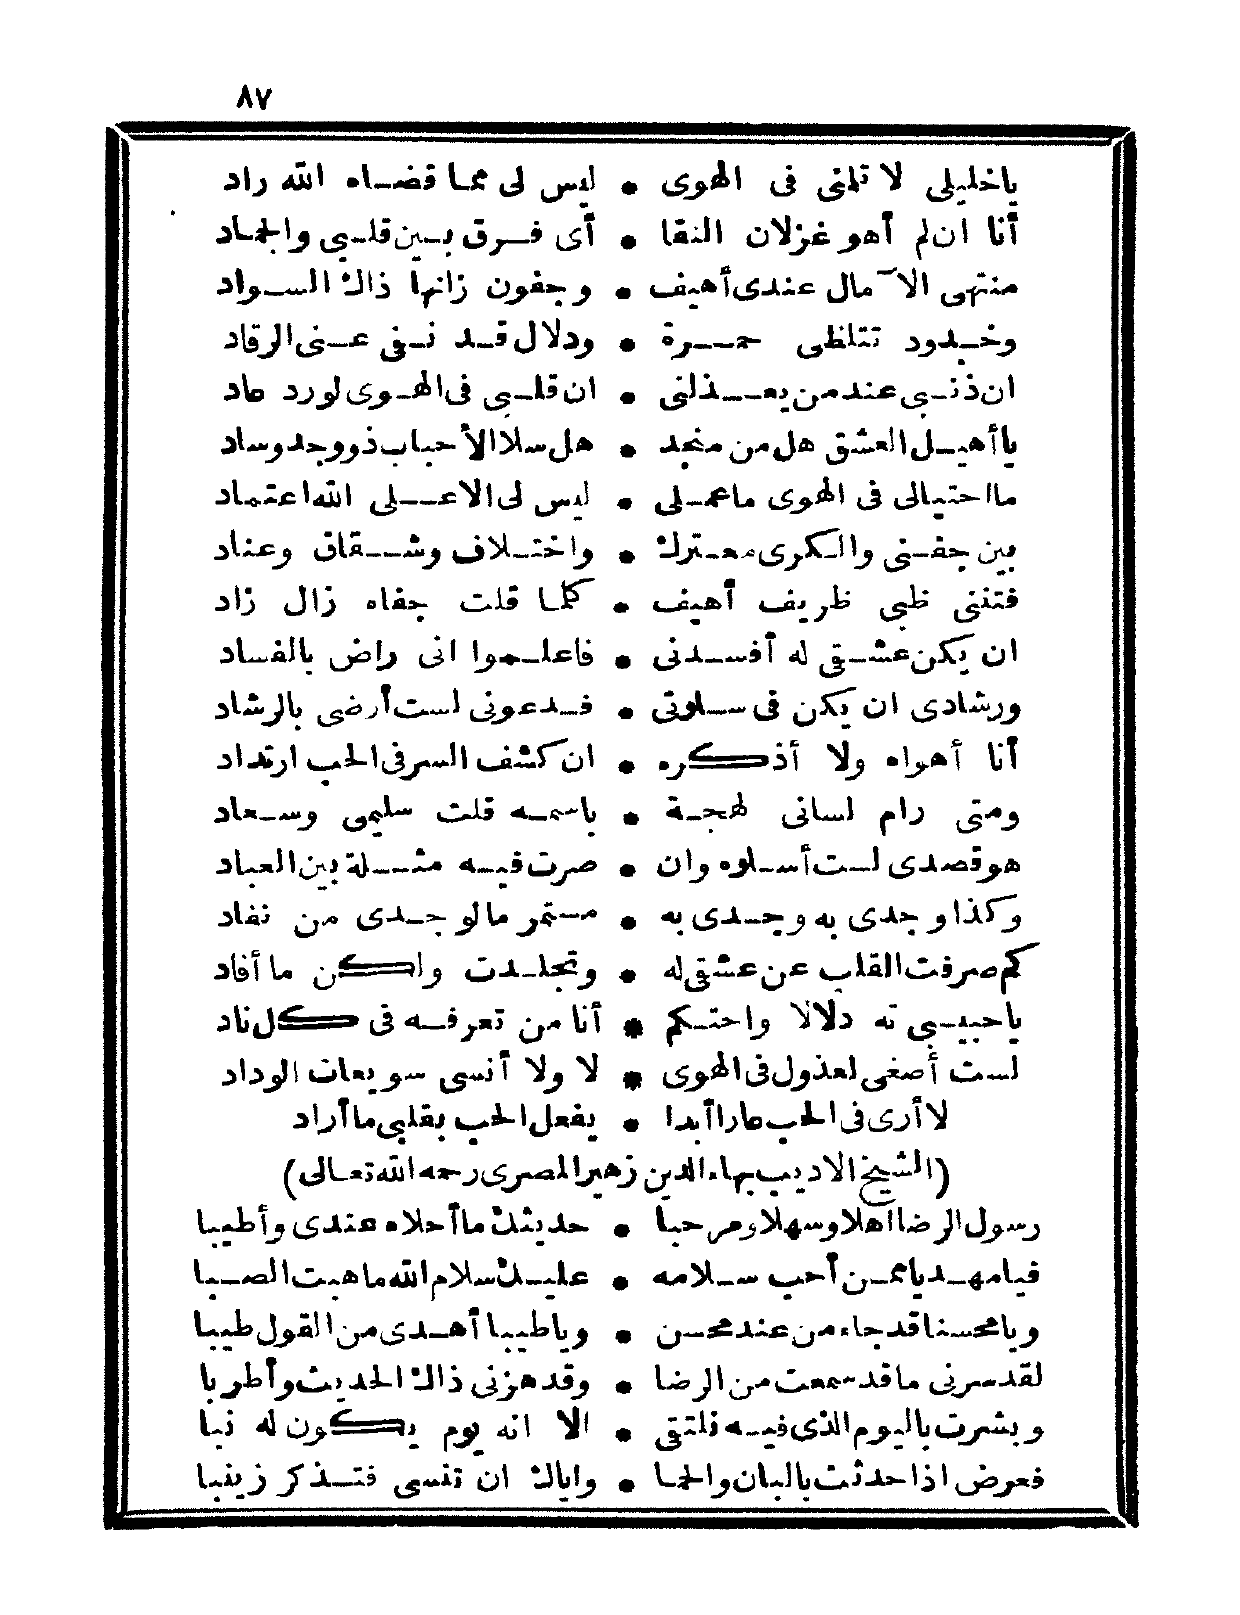 ٨٧
ياخليلى لا تلمنى فى الهوى • ليس لى مما قضاه الله راد
أنا ان لم أهو غزلان النقا • أى فرق بين قلبى والجماد
منتهى الآمال عندى أهيف • وجفون زانها ذاك السواد
وخدود تتلظى حمرة • ودلال قد نفى عنى الرقاد
ان ذنبى عند من يعذلنى • ان قلبى فى الهوى لورد صاد
يا أهيل العشق هل من منجد • هل سلا الأحباب ذو وجد وساد
ما احتيالى فى الهوى ما عملى • ليس لى الا على الله اعتماد
بين جفنى والكرى معترك • واختلاف وشقاق وعناد
فتننى ظبى ظريف أهيف • كلما قلت جفاه زال زاد
ان يكن عشقى له أفسدنى • فاعلموا انى راض بالفساد
ورشادى ان يكن فى سلوتى • فدعونى لست أرضى بالرشاد
أنا أهواه ولا أذكره • ان كشف السر فى الحب ارتداد
ومتى رام لسانى لهجة • باسمه قلت سليمى وسعاد
هو قصدى لست أسلوه وان • صرت فيه مثلة بين العباد
وكذا وجدى به وجدى به • مستمر ما لوجدى من نفاد
كم صرفت القلب عن عشقى له • وتجلدت ولكن ما أفاد
يا حبيبى ته دلالا واحتكم * أنا من تعرفه فى كل ناد
لست أصغى لعذول فى الهوى * لا ولا أنسى سويعات الوداد
لا أرى فى الحب عارا أبدا • يفعل الحب بقلبى ما أراد
(الشيخ الاديب بهاء الدين زهير المصرى رحمه الله تعالى)
رسول الرضا أهلا وسهلا ومرحبا • حديثك ما أحلاه عندى وأطيبا
فيا مهديا ممن أحب سلامه • عليك سلام الله ما هبت الصبا
ويا محسنا قد جاء من عند محسن • ويا طيبا أهدى من القول طيبا
لقد سرنى ما قد سمعت من الرضا • وقد هزنى ذاك الحديث وأطربا
وبشرت باليوم الذى فيه نلتقى • الا انه يوم يكون له نبا
فعرض اذا حدثت بالبان والحما • واياك ان تنسى فتذكر زينبا